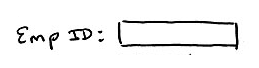 Emp ID: